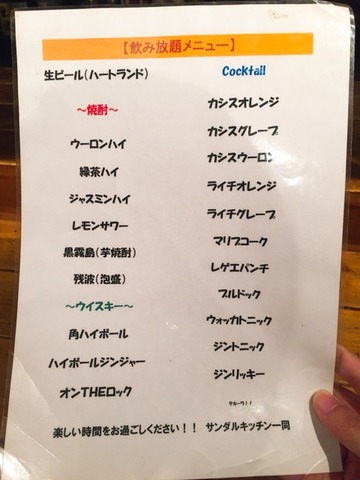 【飲み放題メニュー】
生ビール(ハートランド)
～焼酎～
ウーロンハイ
緑茶ハイ
ジャスミンハイ
レモンサワー
黒霧島(芋焼酎)
残波(泡盛)
～ウイスキー～
角ハイボール
ハイボールジンジャー
オンTHEロック
Cocktail
カシスオレンジ
カシスグレープ
カシスウーロン
ライチオレンジ
ライチグレープ
マリブコーク
レゲエパンチ
ブルドック
ウォッカトニック
ジントニック
ジンリッキー
テキーラ！！
楽しい時間をお過ごしください！！ サンダルキッチン一同